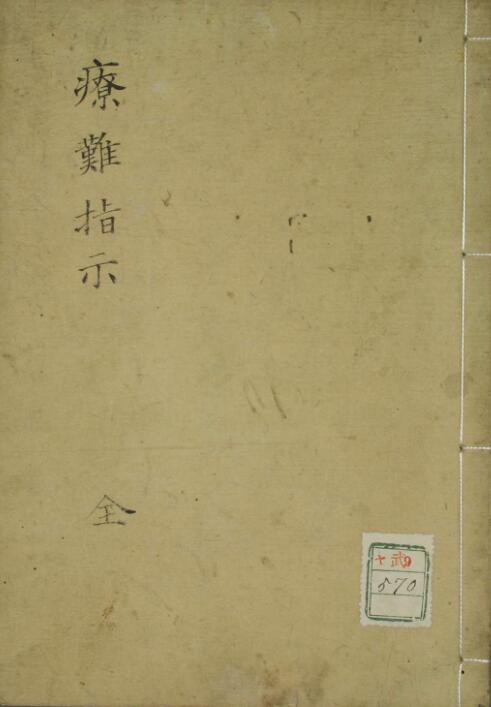 療難指示
全
ヤ武9
570